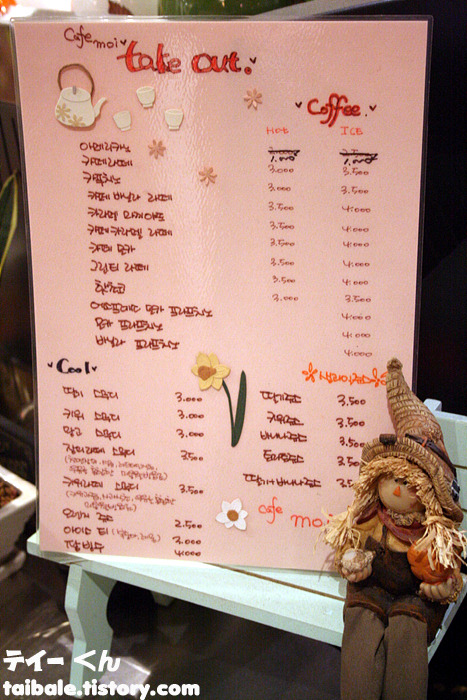 Cafe moi
take out.
Coffee.
HOT ICE
아메리카노 1.000 1.500
카페라떼 3.000 3.500
카푸치노 3.000 3.500
카페 바닐라 라떼 3.500 4.000
카라멜 마끼아또 3.500 4.000
카페 카라멜 라떼 3.500 4.000
카페 모카 3.500 4.000
그린티 라떼 3.500 4.000
3.000 3.500
에스프레소 모카 프라프치노 4.000
모카 프라프치노 4.000
바닐라 프라프치노 4.000
Cool
딸기 스무디 3.000
키위 스무디 3.000
망고 스무디 3.000
3.500
3.500
오렌지 쥬스 2.500
아이스 티 3.000
팥빙수 4.000
생과일쥬스
딸기쥬스 3.500
키위쥬스 3.500
바나나쥬스 3.500
토마토쥬스 3.500
딸기+바나나쥬스
cafe moi
テイー くん
taibale.tistory.com